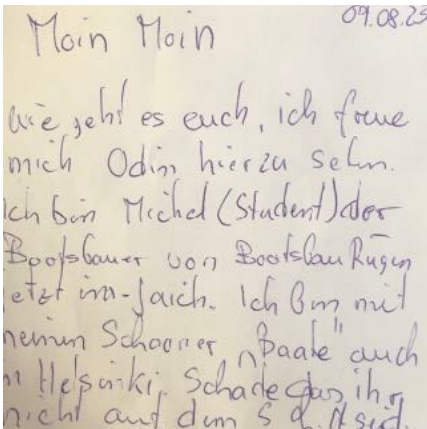 09.08.25
Moin Moin
wie geht es euch, ich freue
mich Odin hier zu sehn.
Ich bin Michel (Student) der
Bootsbauer von Bootsbau Rügen
jetzt im-jaich. Ich bin mit
meinen Schooner „Baale" auch
in Helsinki. Schade das ihr
nicht auf dem